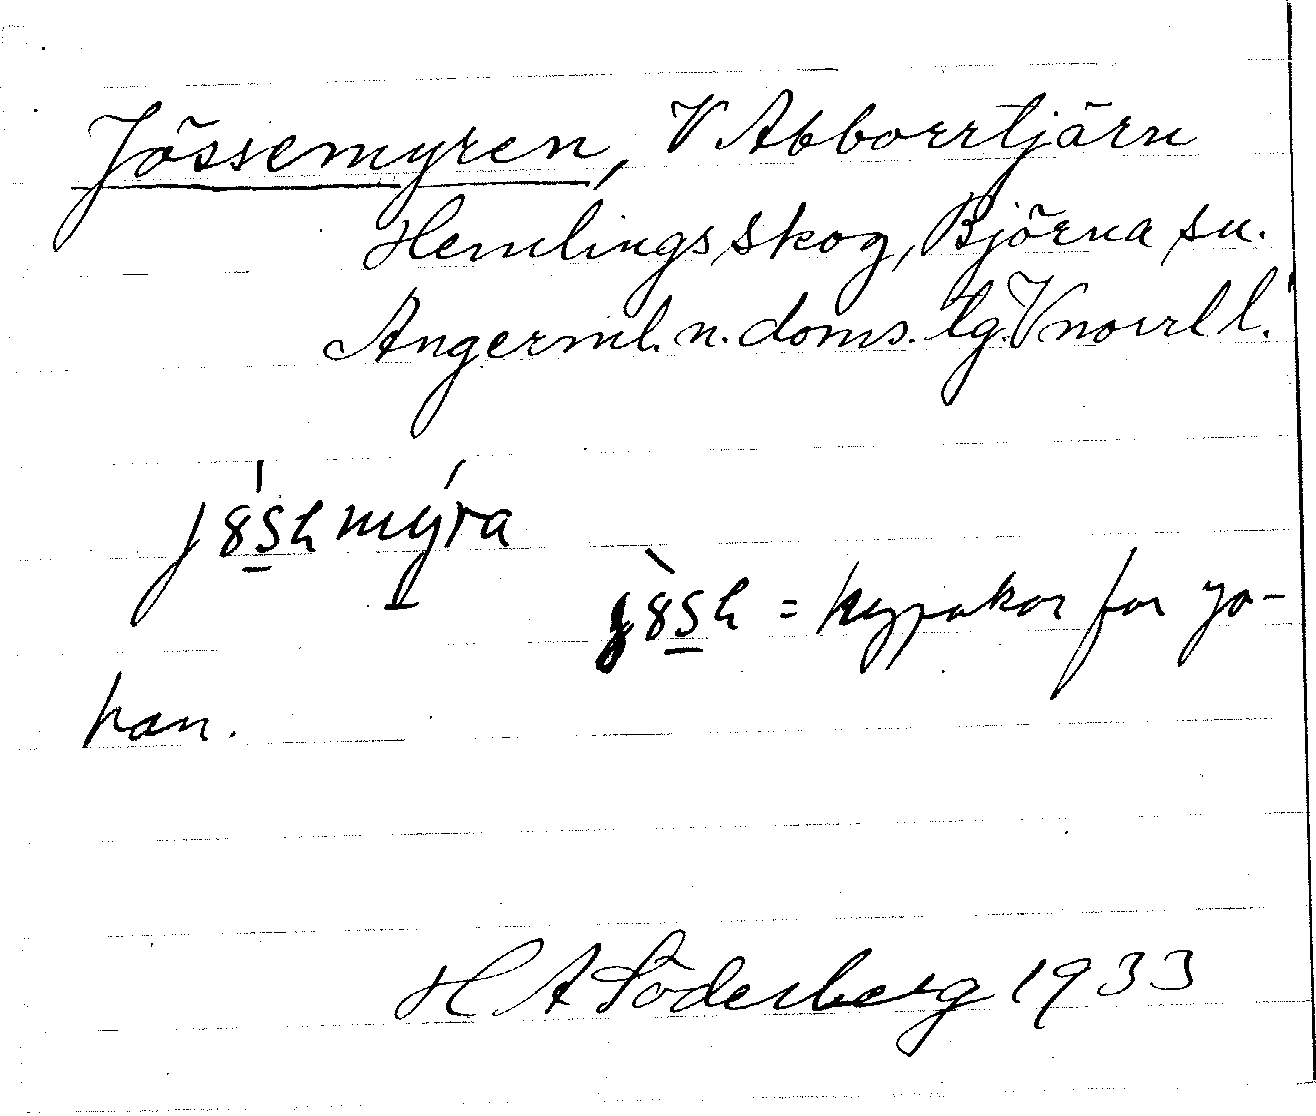 Jössemyren, V Abborrtjärn
Hemlings skog, Björna sn.
Ångerml. n. doms. lg. Vnorrl l.
j8sh mýra
j8sh = hypokor för Jo-
han.
H A Söderberg 1933